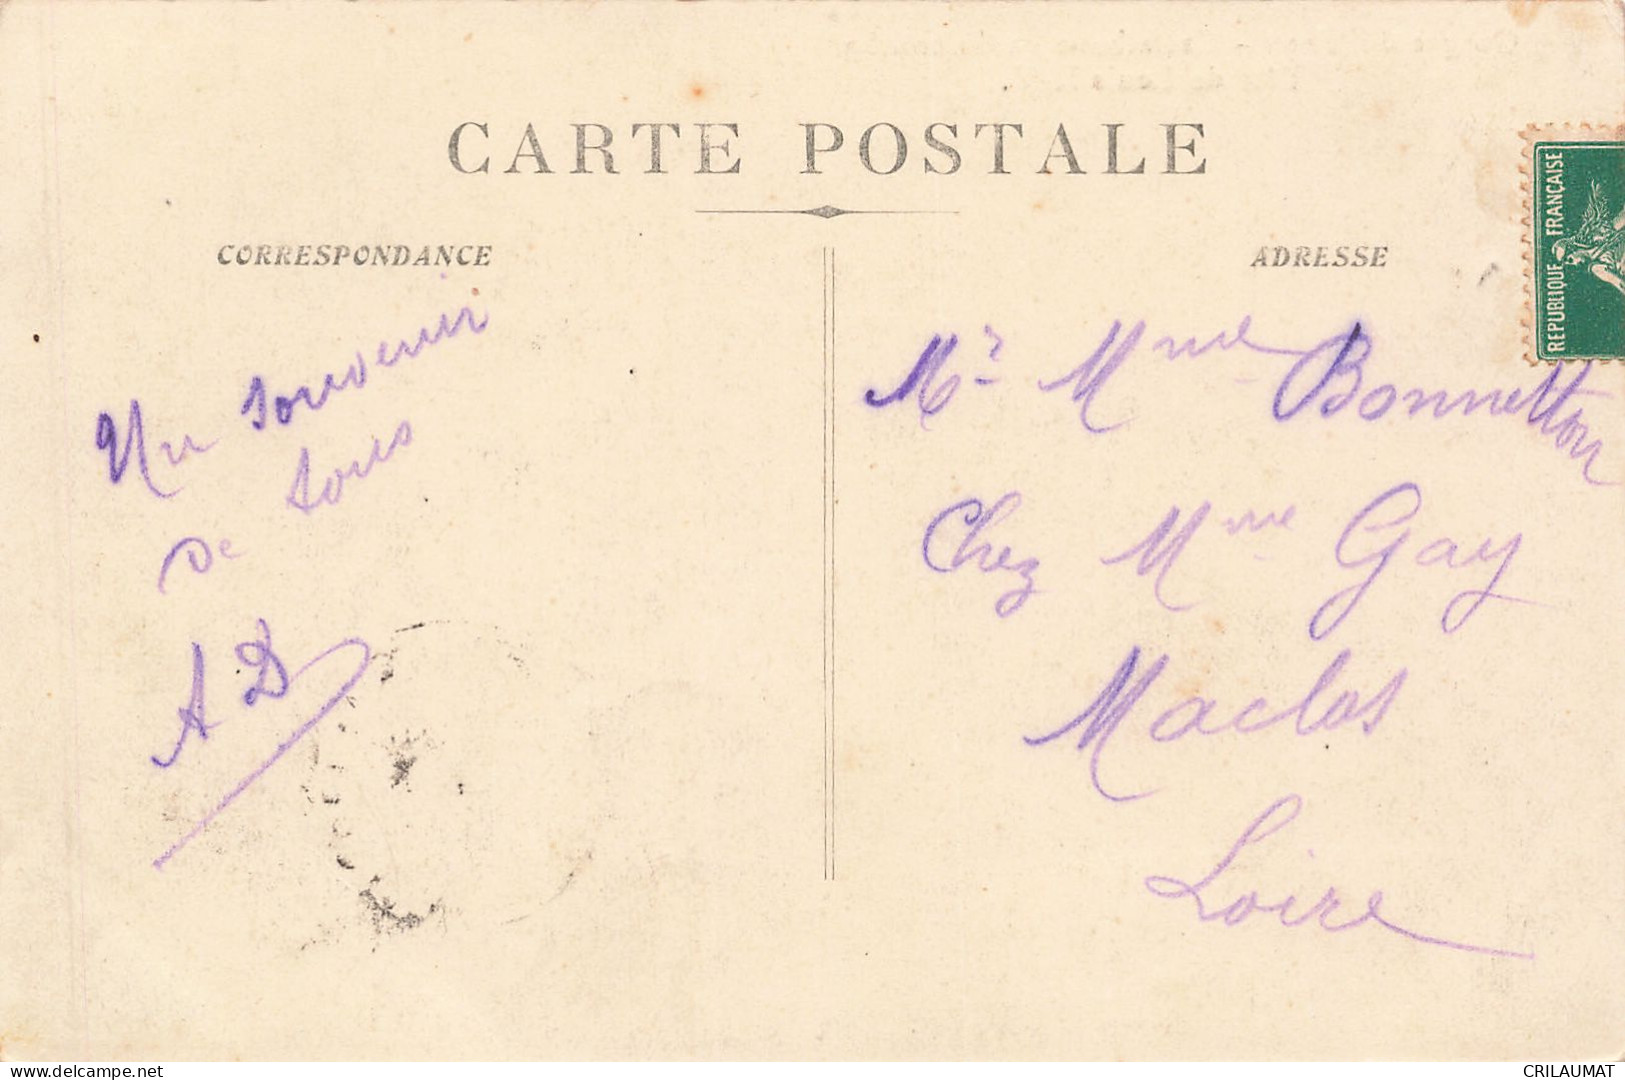 CARTE POSTALE
CORRESPONDANCE
ADRESSE
REPUBLIQUE FRANÇAISE
Un souvenir
de tous
A D
Mr Mme Bonnetton
Chez Mme Gay
Maclas
Loire
delcampe.net
CRILAUMAT